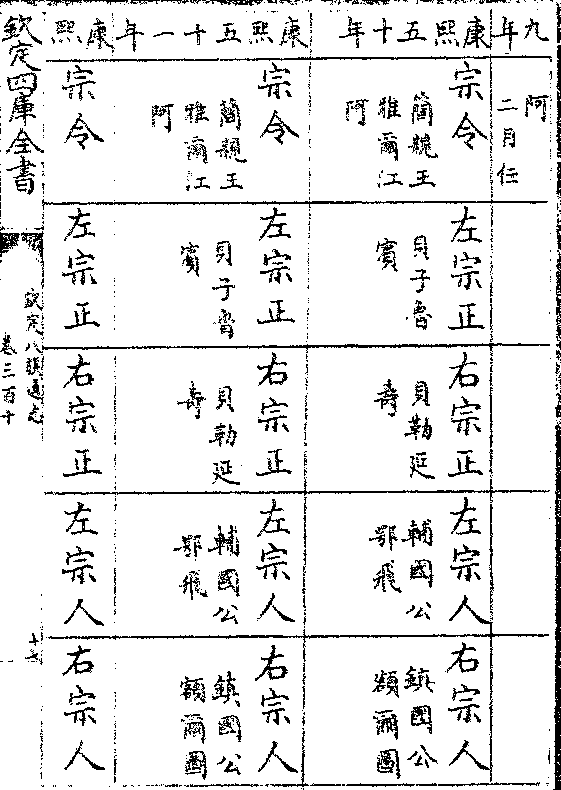 九年
阿
二月任
康熙五十年
宗令
簡親王
雅爾江
阿
左宗正
貝子魯
賓
右宗正
貝勒延
壽
左宗人
輔國公
鄂飛
右宗人
鎮國公
額爾圖
康熙五十一年
宗令
簡親王
雅爾江
阿
左宗正
貝子魯
賓
右宗正
貝勒延
壽
左宗人
輔國公
鄂飛
右宗人
鎮國公
額爾圖
康熙
宗令
左宗正
右宗正
左宗人
右宗人
欽定四庫全書
欽定八旗通志
卷三百十